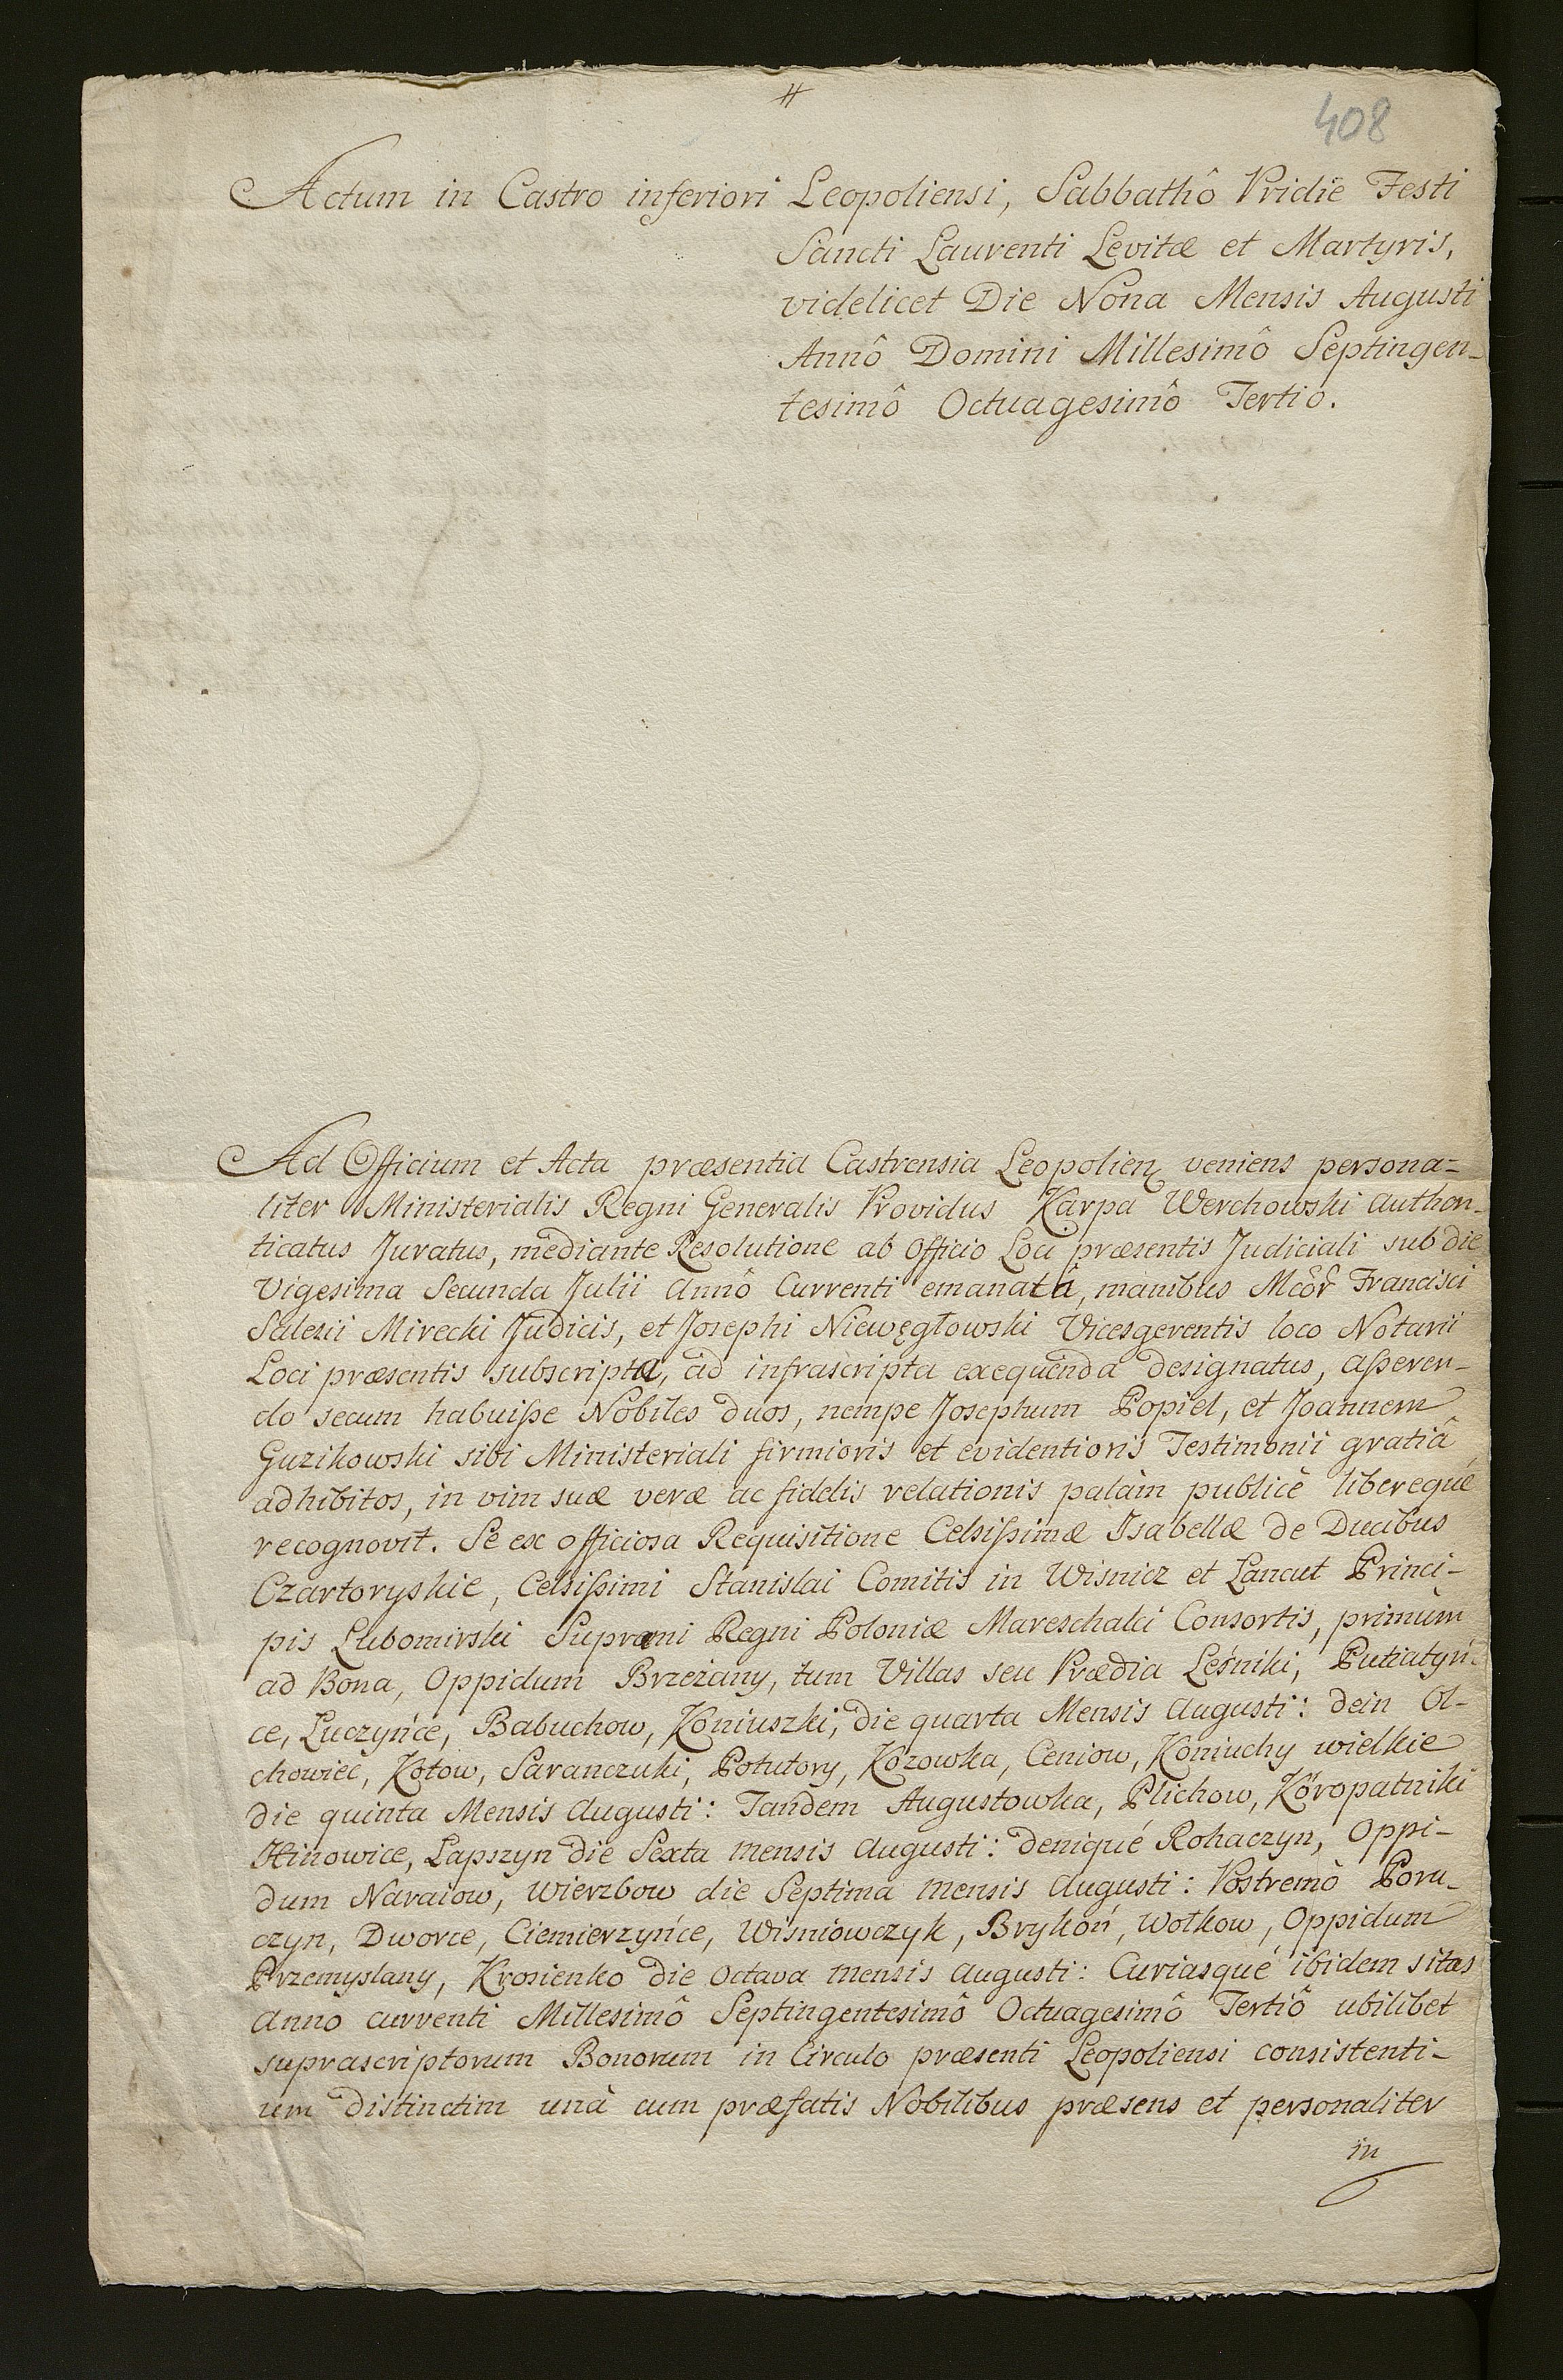 #
408
Actum in Castro inferiori Leopoliensi, Sabbathô Pridie Festi
Sancti Laurenti Levitæ et Martyris,
videlicet Die Nona Mensis Augusti
Annô Domini Millesimô Septingen-
tesimô Octuagesimô Tertio.
Ad Officium et Acta præsentia Castrensia Leopolien veniens persona=
liter Ministerialis Regni Generalis Providus Karpa Werchowski authen-
ticatus Juratus, mediante Resolutione ab Officio Loci præsentis Judiciali sub die
Vigesima Secunda Julii Annô Currenti emanatâ, manibus Mcôr Francisci
Salesii Mirecki Judicis, et Josephi Niewęgłowski Vicesgerentis loco Notarii
Loci præsentis subscripta, ad infrascripta exequenda designatus, asseren-
do secum habuisse Nobiles duos, nempe Josephum Popiel, et Joannem
Guzikowski sibi Ministeriali firmioris et evidentioris Testimonii gratiâ
adhibitos, in vim suæ veræ ac fidelis relationis palàm publicè libereque
recognovit. Se ex officiosa Requisitione Celsissimæ Isabellæ de Ducibus
Czartoryskie, Celsissimi Stanislai Comitis in Wisnicz et Lancut Princi-
pis Lubomirski Supremi Regni Poloniæ Mareschalci Consortis, primùm
ad Bona, Oppidum Brzeżany, tum Villas seu Prædia Leśniki, Putiatyń-
ce, Luczyńce, Babuchow, Koniuszki, die quarta Mensis Augusti: dein Ol-
chowiec, Kotow, Saranczuki, Potutory, Kozowka, Ceniow, Koniuchy wielkie
die quinta Mensis Augusti: Tandem Augustowka, Plichow, Koropatniki
Hinowice, Lapszyn die Sexta mensis Augusti: deniqué Rohaczyn, Oppi-
dum Naraiow, Wierzbow die Septima mensis Augusti: Postremò Poru-
czyn, Dworce, Ciemierzyńce, Wisniowczyk, Brykoń, Wołkow, Oppidum
Przemyslany, Krosienko die Octava mensis Augusti: Curiasqué ibidem sitas
Anno currenti Millesimô Septingentesimô Octuagesimô Tertiô ubilibet
suprascriptorum Bonorum in Circulo præsenti Leopoliensi consistenti-
um distinctim unà cum præfatis Nobilibus præsens et personaliter
in